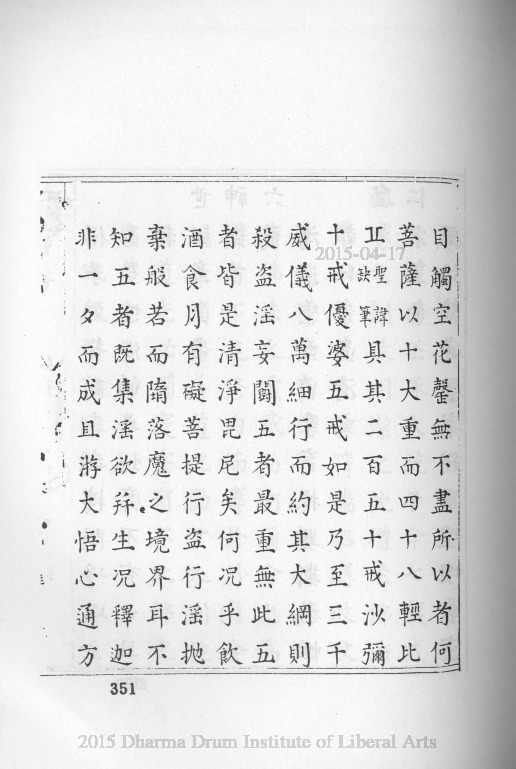 目觸空花罄無不盡所以者何
菩薩以十大重而四十八輕比
丘聖諱缺筆具其二百五十戒沙彌
十戒優婆五戒如是乃至三千
威儀八萬細行而約其大綱則
殺盜淫妄闘五者最重無此五
者皆是清淨毘尼矣何況乎飲
酒食月有礙菩提行盜行淫拋
棄般若而隋落魔之境界耳不
知五者既集淫欲并生況釋迦
非一夕而成且游大悟心通方
351
2015-04-17
2015 Dharma Drum Institute of Liberal Arts